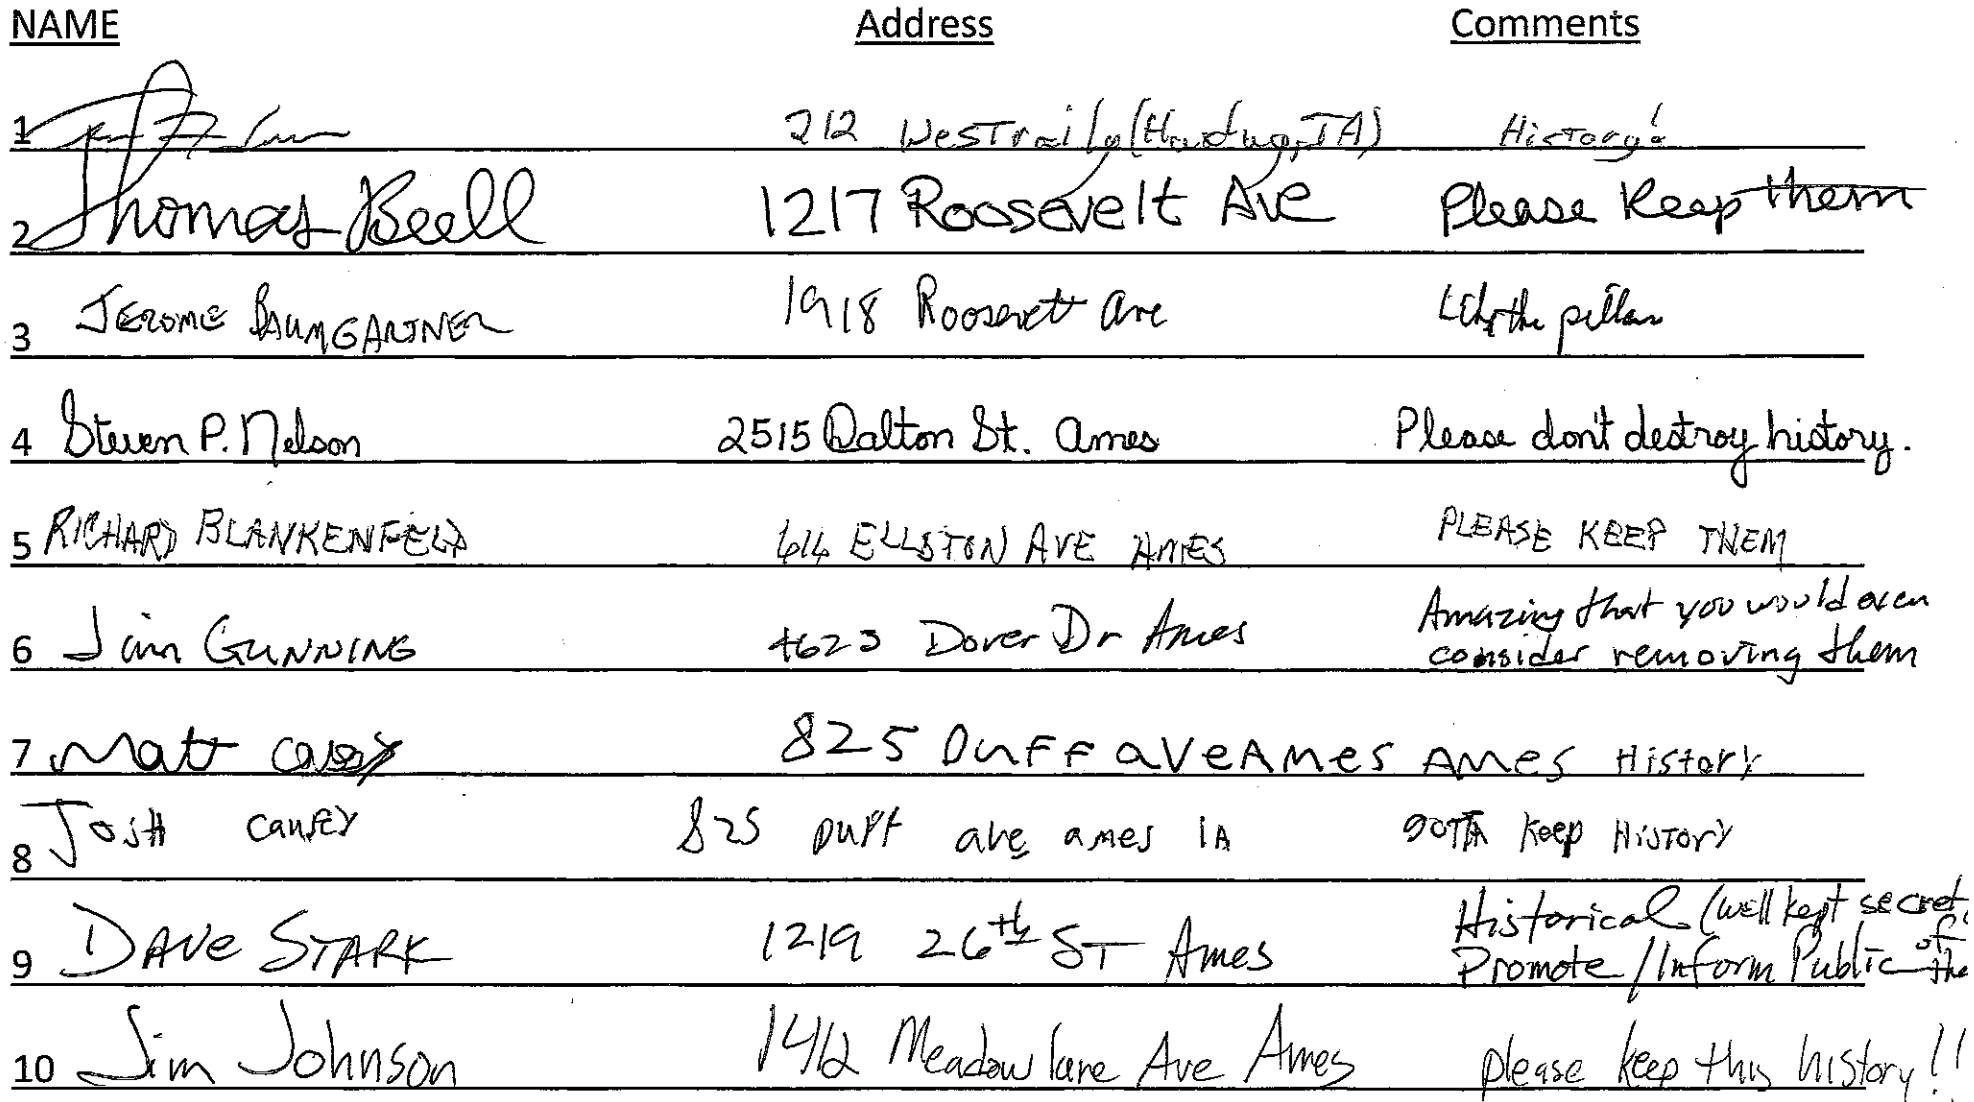 NAME Address Comments
1 212 Westraily (Hardwg, IA) History!
2 Thomas Beell 1217 Roosevelt Ave Please keep them
3 JEROME BAUMGARTNER 1918 Roosevelt Ave Like the pillars
4 Steven P. Nelson 2515 Dalton St. Ames Please don't destroy history.
5 RICHARD BLANKENFELD 614 ELLSTON AVE AMES PLEASE KEEP THEM
6 Jim GUNNING 4623 Dover Dr Ames Amazing that you would even
consider removing them
7 Matt Casey 825 DUFF aVe AMES AMes HisTory
8 JOSH Causey 825 DUFF ave ames IA gOTTA Keep HISTORY
9 DAVE STARK 1219 26th ST Ames Historical (well kept secret)
Promote / Inform Public of the
10 Jim Johnson 1412 Meadowlane Ave Ames please keep this history!!